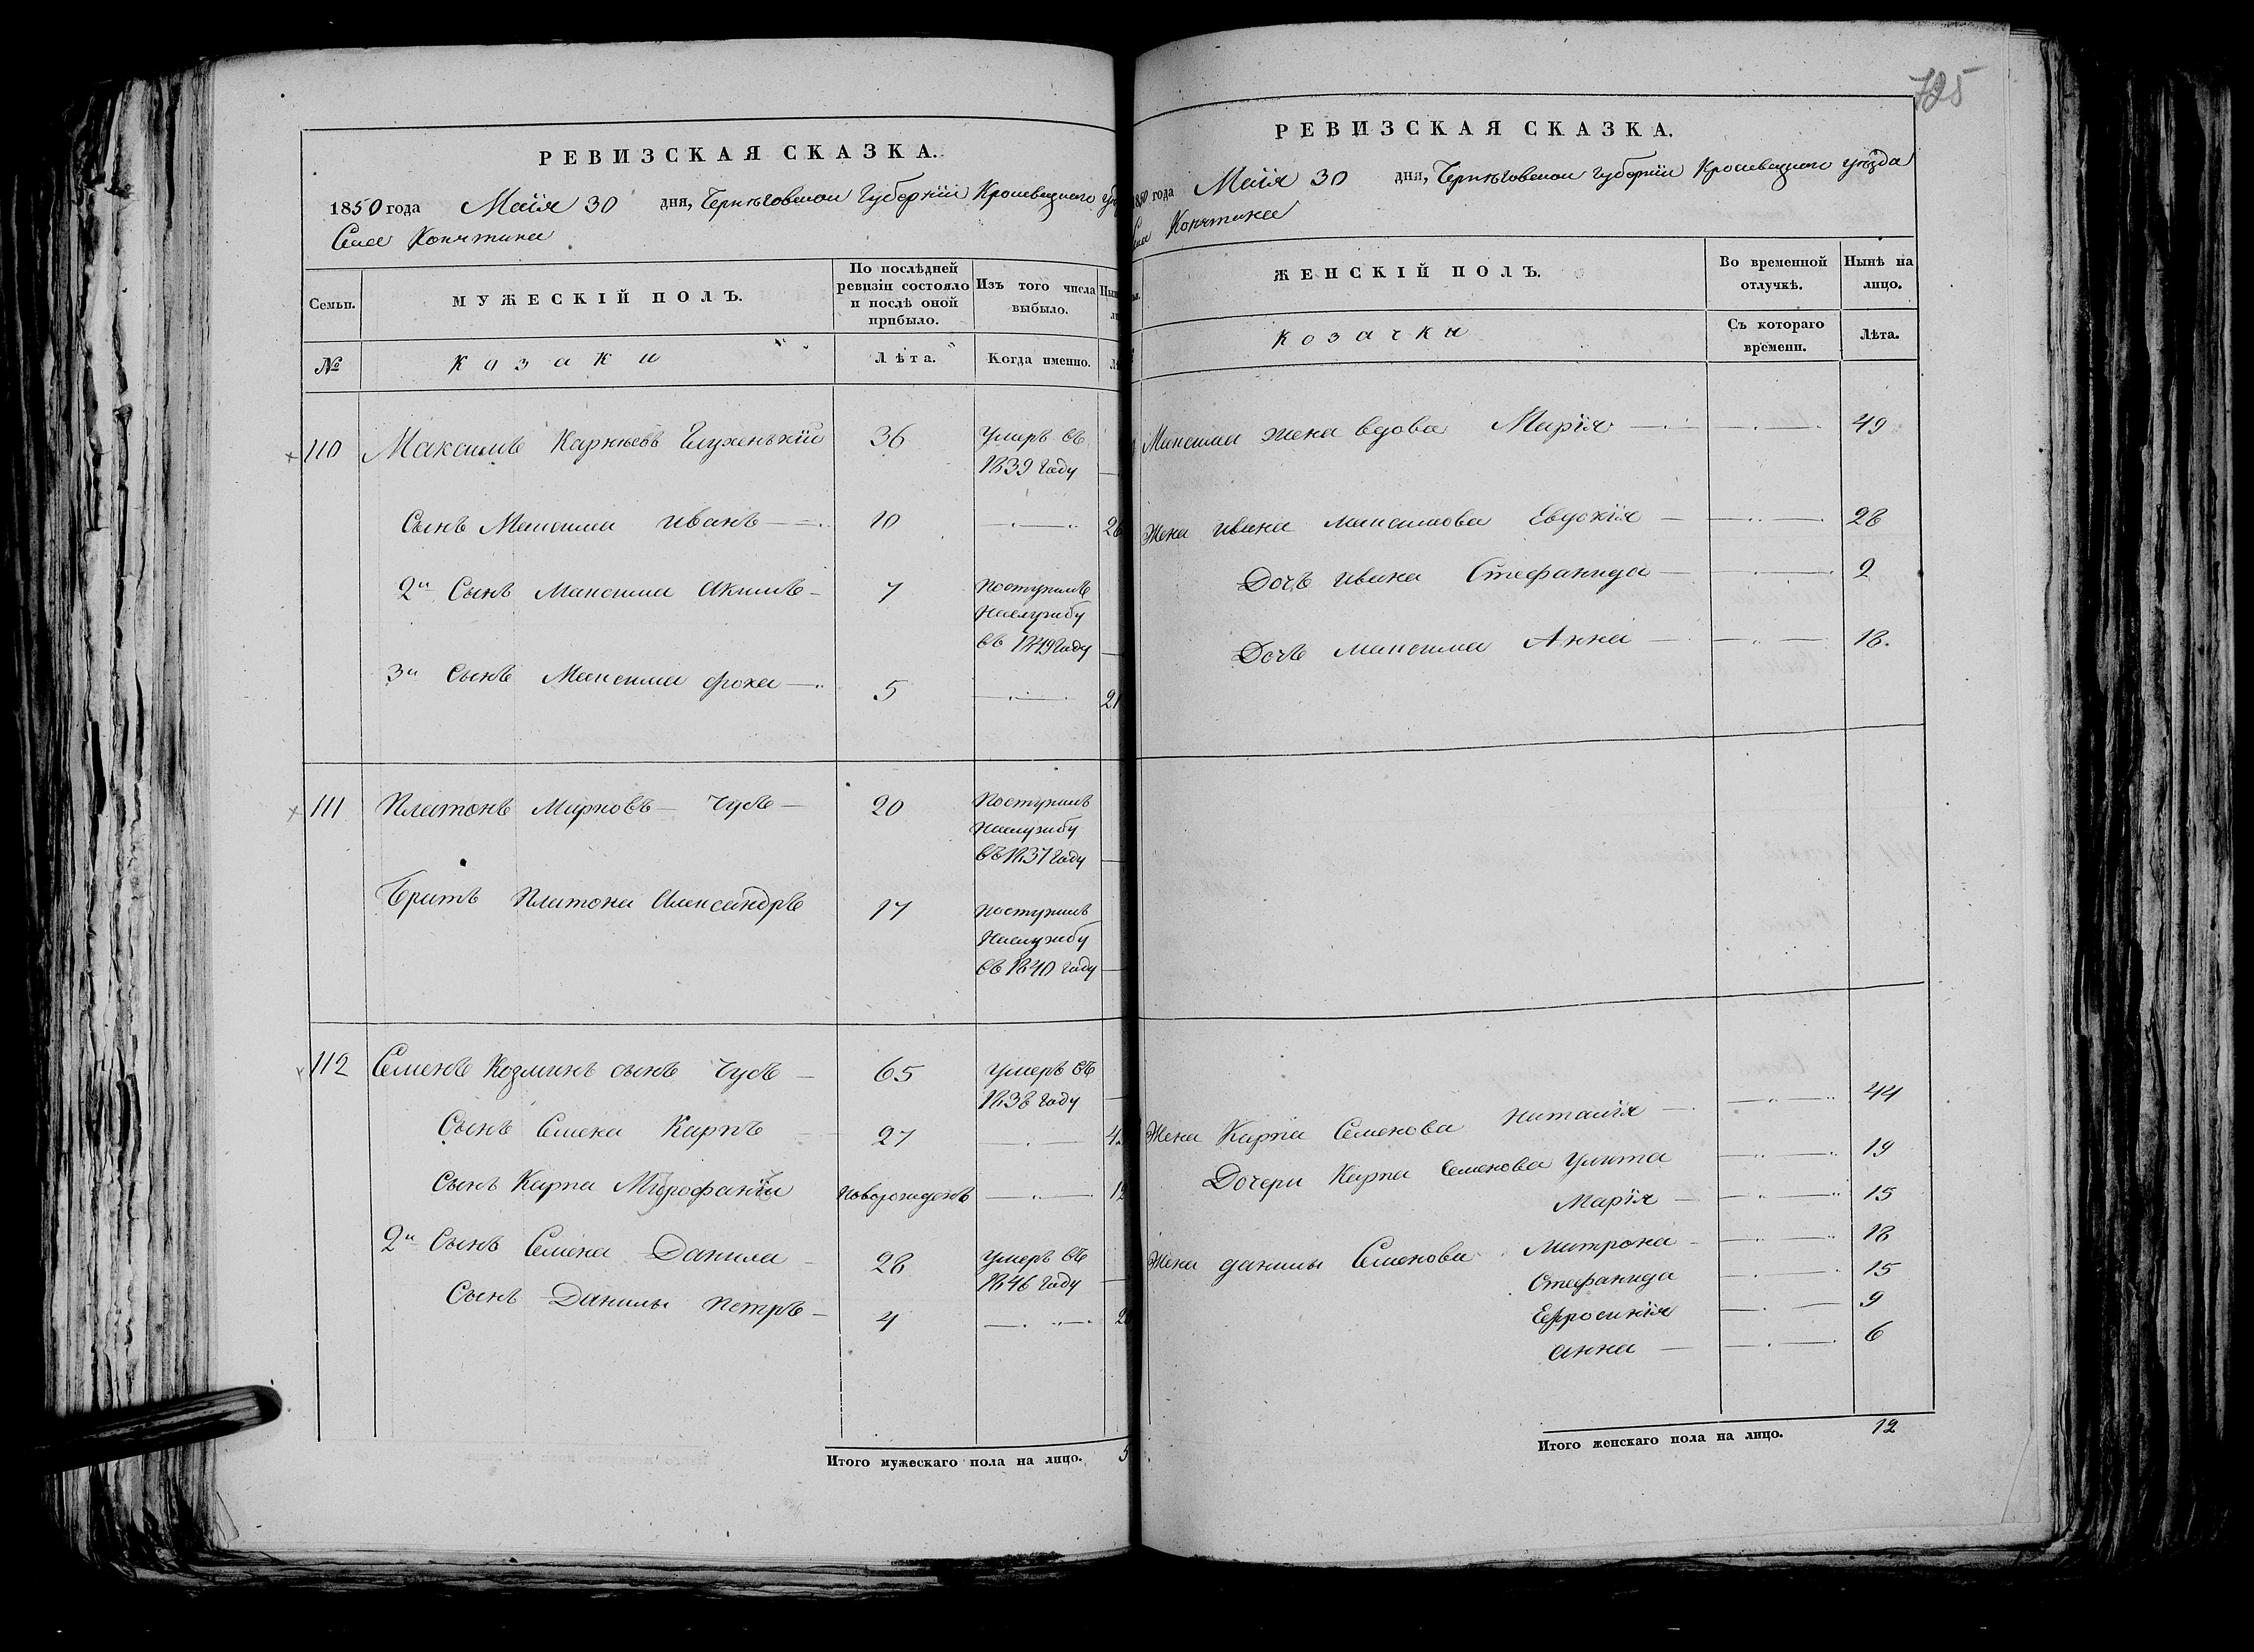 РЕВИЗСКАЯ СКАЗКА.
1850 года Маія 30 дня, Черниговской Губерніи Кролевецкаго
Села
Семьи.
МУЖЕСКІЙ ПОЛЪ.
По послѣдней ревизіи состояло и послѣ оной прибыло.
Изъ того числа выбыло.
№
Козаки
Лѣта.
Когда именно.
110 Максимъ Карнѣевъ 36 Умеръ въ
1839 году
Сынъ Максима Иванъ 10 26
2й Сынъ Максима Акимъ 7 Поступилъ
На службу
въ 1849 году
3й Сынъ Максима 5 21
111 Платонъ Марковъ Чубъ 20 Поступилъ
На службу
въ 1837 году
Братъ Платона Александръ 17 поступилъ
На службу
въ 1840 году
112 Семенъ Козминъ сынъ Чубъ 65 умеръ въ
1838 году
Сынъ Семена Карпъ 27
Сынъ Карпа Митрофаній новорожденъ
2й Сынъ Семена Данила 28 умеръ въ
1846 году
Сынъ Данилы Петръ 4
Итого мужескаго пола на лицо. 5
725
РЕВИЗСКАЯ СКАЗКА.
1850 года Маія 30 дня, Черниговской Губерніи Кролевецкаго уѣзда
ЖЕНСКІЙ ПОЛЪ.
Во временной отлучкѣ.
Нынѣ на лицо.
Козачки
Съ котораго времени.
Лѣта.
Максима жена вдова Марія 49
Жена Ивана Максимова Евдокія 28
Дочь Ивана Стефанида 2
Дочь Максима Анна 18.
Жена Карпа Семенова Наталія 44
Дочери Карпа Семенова Улита 19
Марія 15
Жена Данилы Семенова Матрона 18
Стефанида 15
Ефросинія 9
Анна 6
Итого женскаго пола на лицо. 12